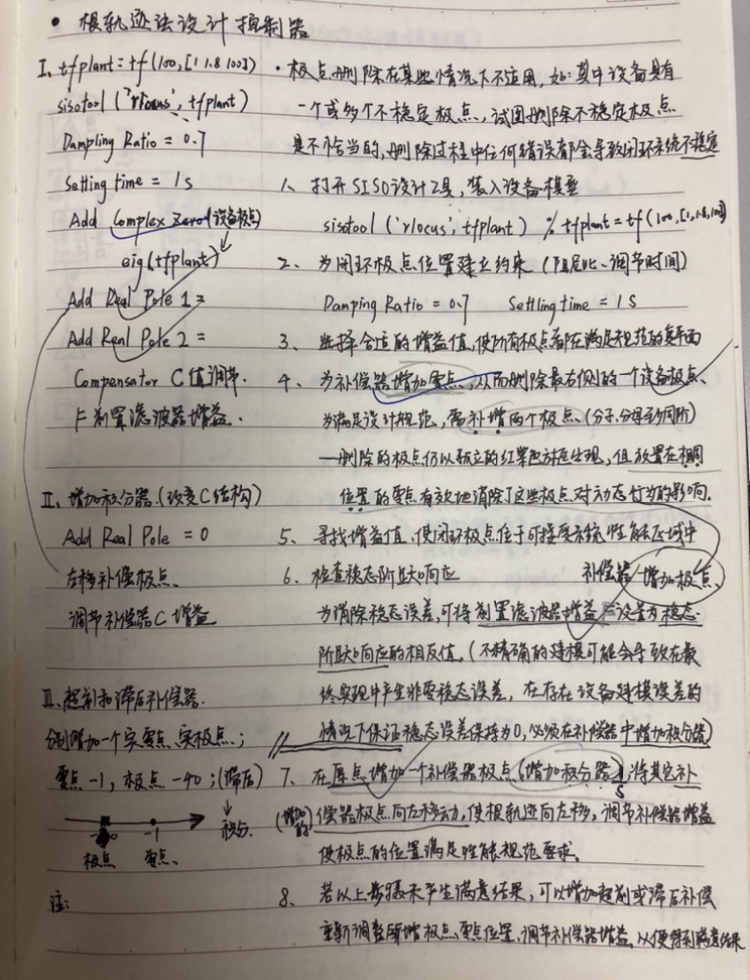 • 根轨迹法设计控制器
I、tfplant = tf(100, [1 1.8 100])
sisotool('rlocus', tfplant)
Dampling Ratio = 0.7
Setting time = 1s
Add Complex Zero(设备极点)
eig(tfplant)
Add Real Pole 1 =
Add Real Pole 2 =
Compensator C值调节.
F 前置滤波器增益.
II、增加积分器.(改变C结构)
Add Real Pole = 0
左移补偿极点.
调节补偿器C增益
III、超前和滞后补偿器.
分别增加一个实零点、实极点;
零点 -1, 极点 -40;(滞后)
-1
极点 零点.
注:
• 极点删除在某些情况下不适用, 如: 其中设备具有
一个或多个不稳定极点, 试图删除不稳定极点
是不恰当的, 删除过程中任何错误都会导致闭环系统不稳定
1、打开SISO设计工具, 装入设备模型
sisotool('rlocus', tfplant) % tfplant = tf(100, [1, 1.8, 100])
2、为闭环极点位置建立约束 (阻尼比、调节时间)
Damping Ratio = 0.7 Settling time = 1s
3、选择合适的增益值, 使所有极点都在满足规范的复平面
4、为补偿器增加零点, 从而删除最右侧的一个设备极点、
为满足设计规范, 需补增两个极点.(分子、分母为同阶)
—删除的极点仍以孤立的红篆色方框出现, 但放置在相同
位置的零点有效地消除了这些极点对动态行为的影响.
5、寻找增益值, 使闭环极点位于可接受系统性能区域中
6、检查稳态阶跃响应 补偿器 增加极点
为消除稳态误差, 可将前置滤波器增益设置为稳态
阶跃响应的相反值.(不精确的建模可能会导致在最
终实现中产生非零稳态误差, 在存在设备建模误差的
情况下保证稳态误差保持为0, 必须在补偿器中增加积分器)
7、在原点增加一个补偿器极点 (增加积分器) 1/s, 将其它补
(增加的) 偿器极点向左移动, 使根轨迹向左移, 调节补偿器增益
使极点的位置满足性能规范要求.
8、若以上步骤未产生满意结果, 可以增加超前或滞后补偿
重新调整所增极点、零点位置、调节补偿器增益, 以便得到满意结果